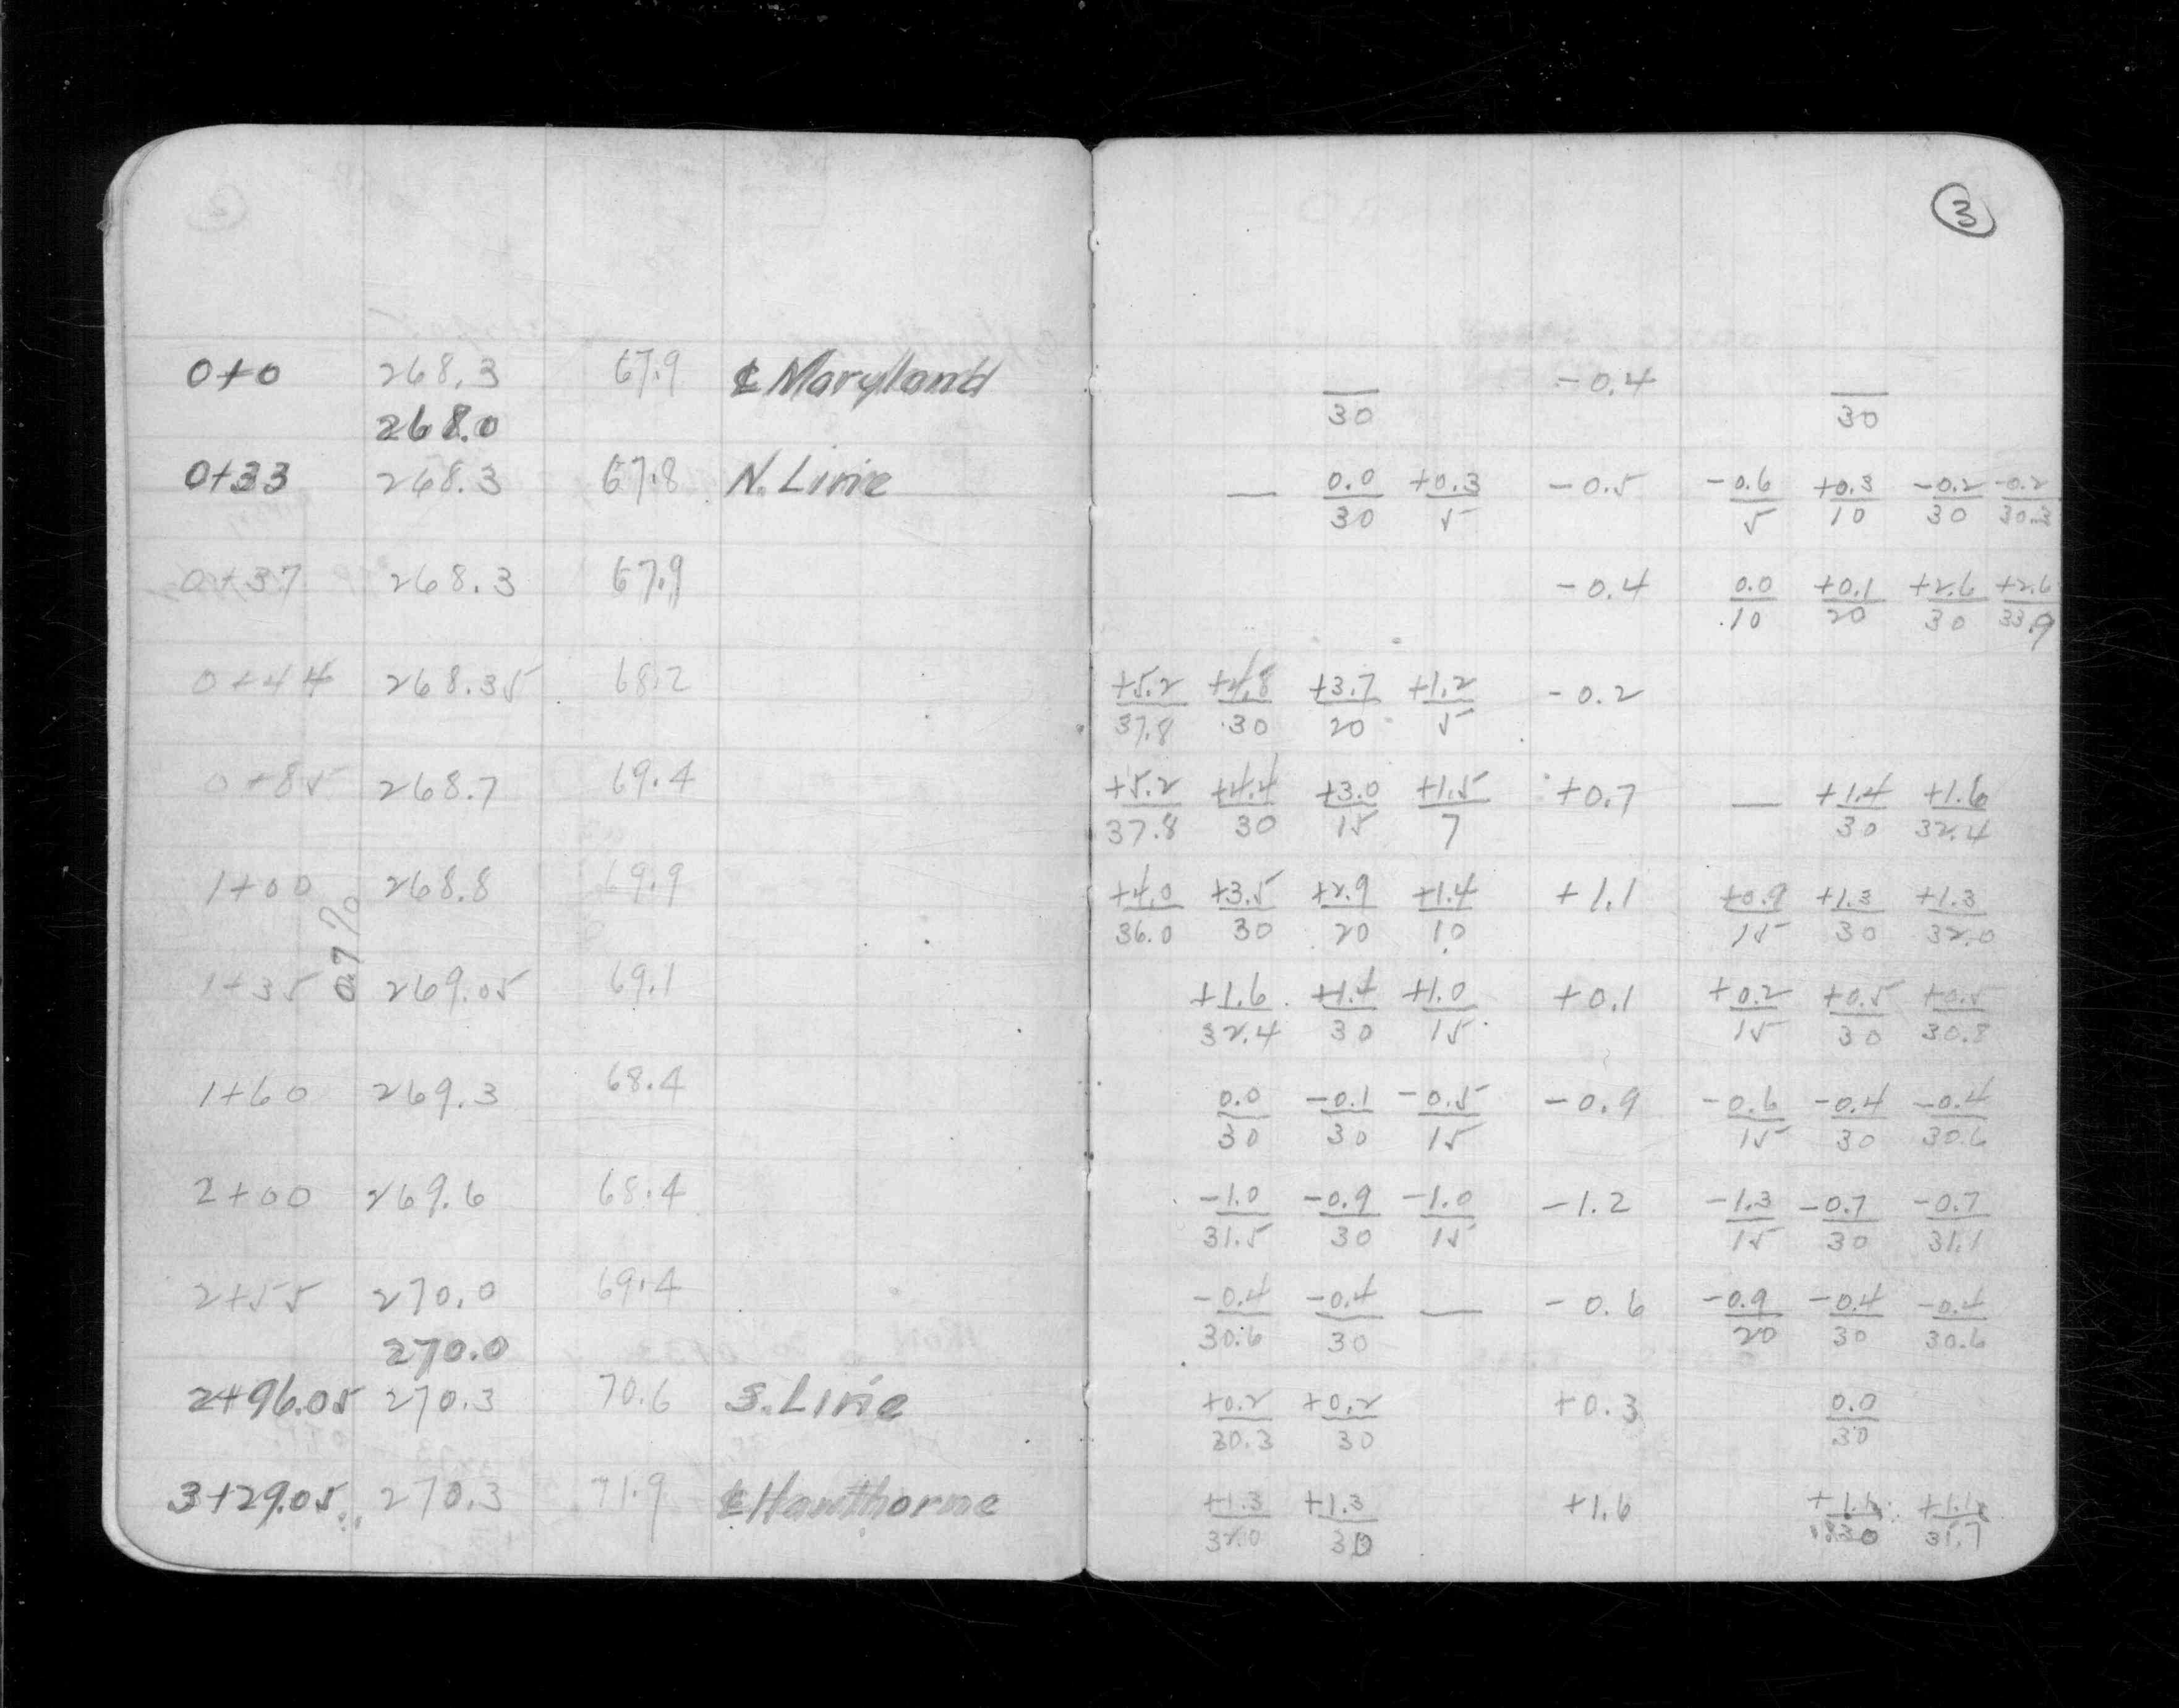 3
0+0 268.3 67.9 ℄ Maryland —/30 -0.4 —/30
268.0
0+33 268.3 67.8 N. Line — 0.0/30 +0.3/5 -0.5 -0.6/5 +0.3/10 -0.2/30 -0.2/30.3
0+37 268.3 67.9 -0.4 0.0/10 +0.1/20 +2.6/30 +2.6/33.9
0+44 268.35 68.2 +5.2/37.8 +4.8/30 +3.7/20 +1.2/5 -0.2
0+85 268.7 69.4 +5.2/37.8 +4.4/30 +3.0/15 +1.5/7 +0.7 — +1.4/30 +1.6/32.4
1+00 268.8 69.9 +4.0/36.0 +3.5/30 +2.9/20 +1.4/10 +1.1 +0.9/15 +1.3/30 +1.3/32.0
0.7%
1+35 269.05 69.1 +1.6/32.4 +1.4/30 +1.0/15 +0.1 +0.2/15 +0.5/30 +0.5/30.8
1+60 269.3 68.4 0.0/30 -0.1/30 -0.5/15 -0.9 -0.6/15 -0.4/30 -0.4/30.6
2+00 269.6 68.4 -1.0/31.5 -0.9/30 -1.0/15 -1.2 -1.3/15 -0.7/30 -0.7/31.1
2+55 270.0 69.4 -0.4/30.6 -0.4/30 — -0.6 -0.9/20 -0.4/30 -0.4/30.6
270.0
2+96.05 270.3 70.6 S. Line +0.2/30.3 +0.2/30 +0.3 0.0/30
3+29.05 270.3 71.9 ℄ Hawthorne +1.3/32.0 +1.3/30 +1.6 +1.1/30 +1.1/31.7